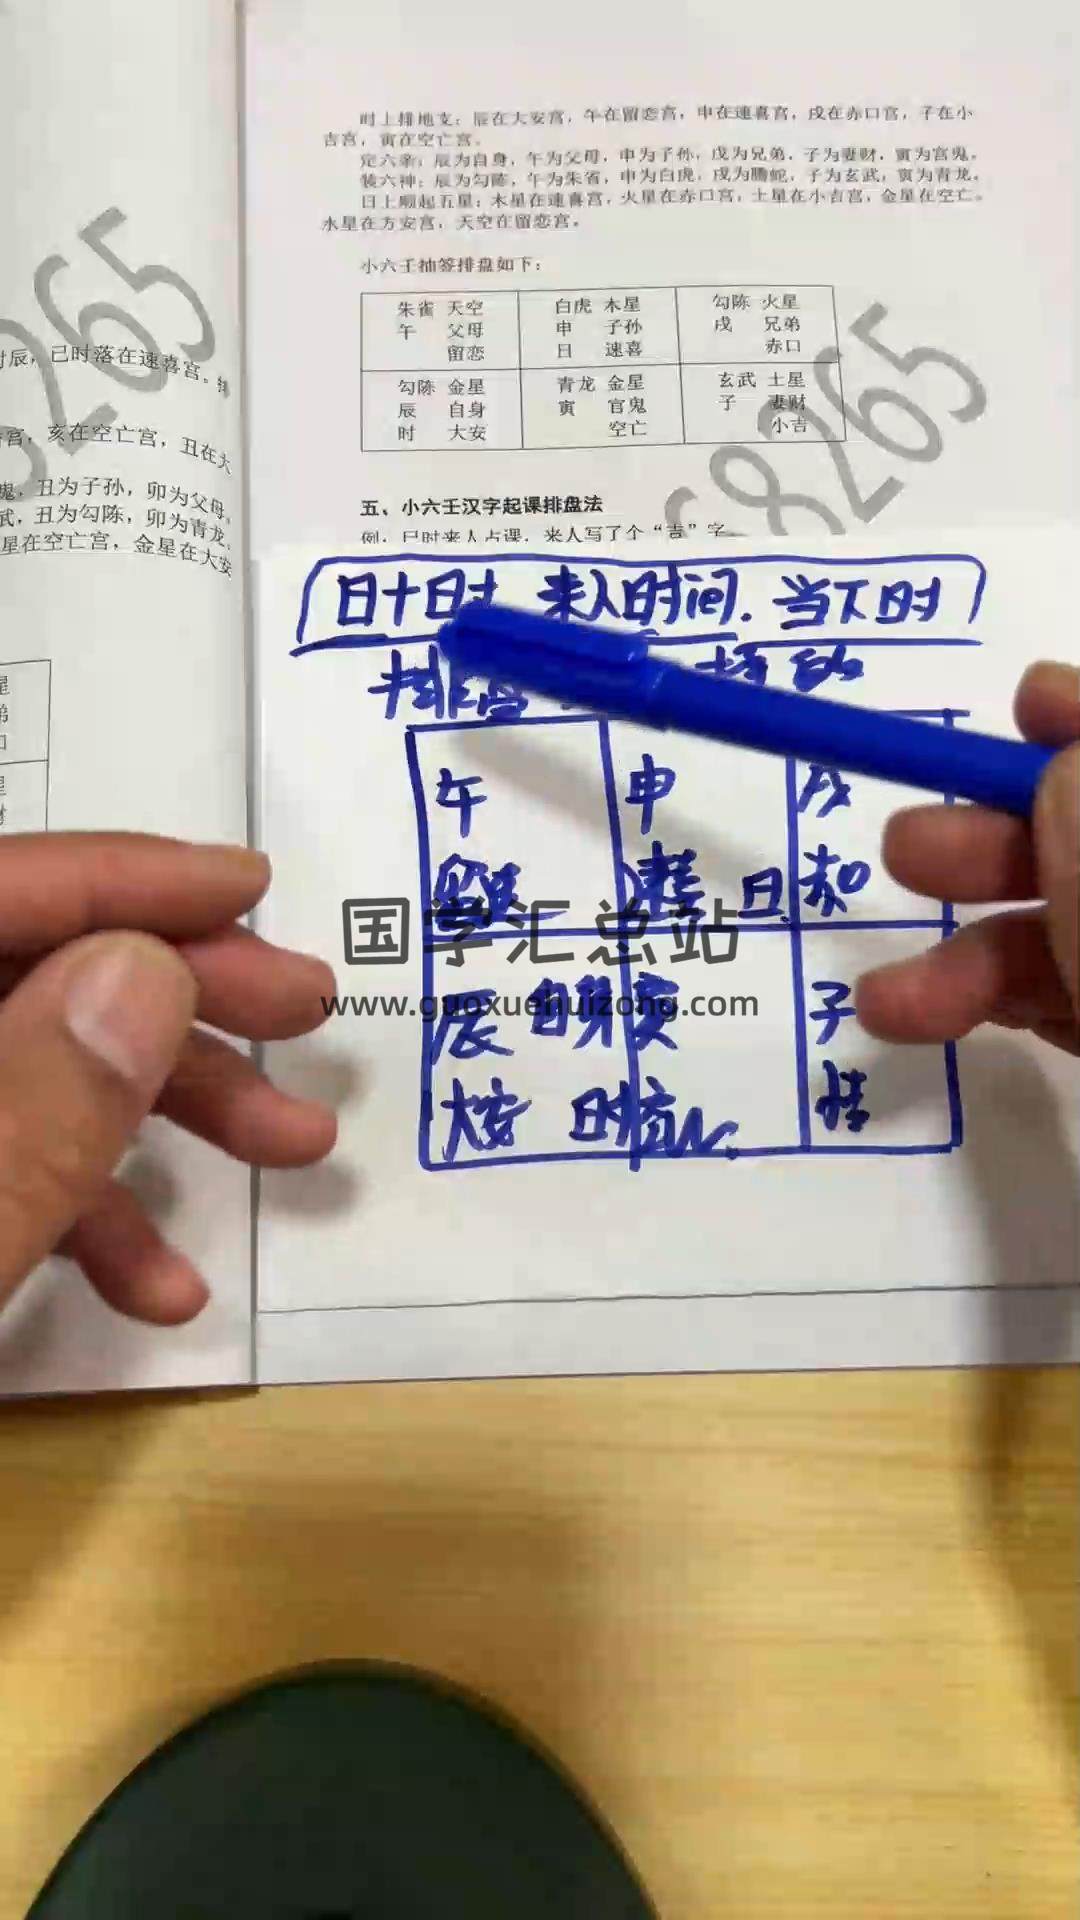 时上排地支：辰在大安宫，午在留恋宫，申在速喜宫，戌在赤口宫，子在小
吉宫，寅在空亡宫。
定六亲：辰为自身，午为父母，申为子孙，戌为兄弟，子为妻财，寅为官鬼。
装六神：辰为勾陈，午为朱雀，申为白虎，戌为腾蛇，子为玄武，寅为青龙。
日上顺起五星：木星在速喜宫，火星在赤口宫，土星在小吉宫，金星在空亡。
水星在方安宫，天空在留恋宫。
小六壬抽签排盘如下：
朱雀 天空 白虎 木星 勾陈 火星
午 父母 申 子孙 戌 兄弟
留恋 日 速喜 赤口
勾陈 金星 青龙 金星 玄武 土星
辰 自身 寅 官鬼 子 妻财
时 大安 空亡 小吉
五、小六壬汉字起课排盘法
例：巳时来人占课，来人写了个“吉”字
时辰，已时落在速喜宫。
宫，亥在空亡宫，丑在大
鬼，丑为子孙，卯为父母。
武，丑为勾陈，卯为青龙。
星在空亡宫，金星在大安
星
弟
口
星
财
68265
8265
日十时 来人时间. 当下时
排盘
午 申 戌
留恋 速喜 日 赤口
辰 自身 寅 子
大安 时 空亡 小吉
国学汇总站
www.guoxuehuizong.com